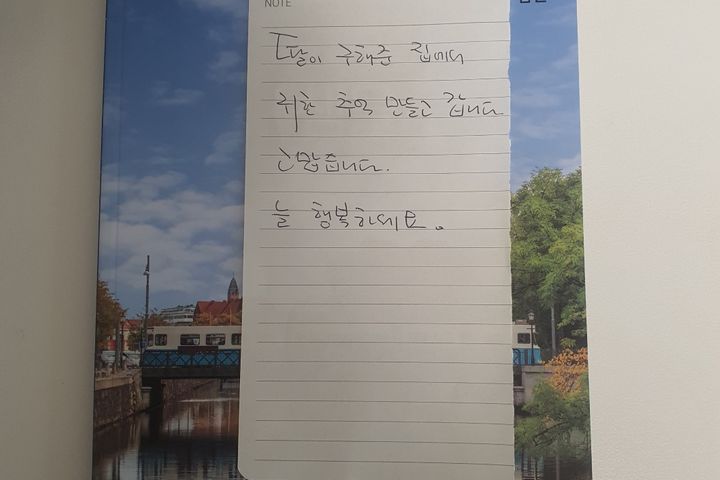 NOTE
딸이 구해준 집에서
귀한 추억 만들고 갑니다
고맙습니다.
늘 행복하세요.